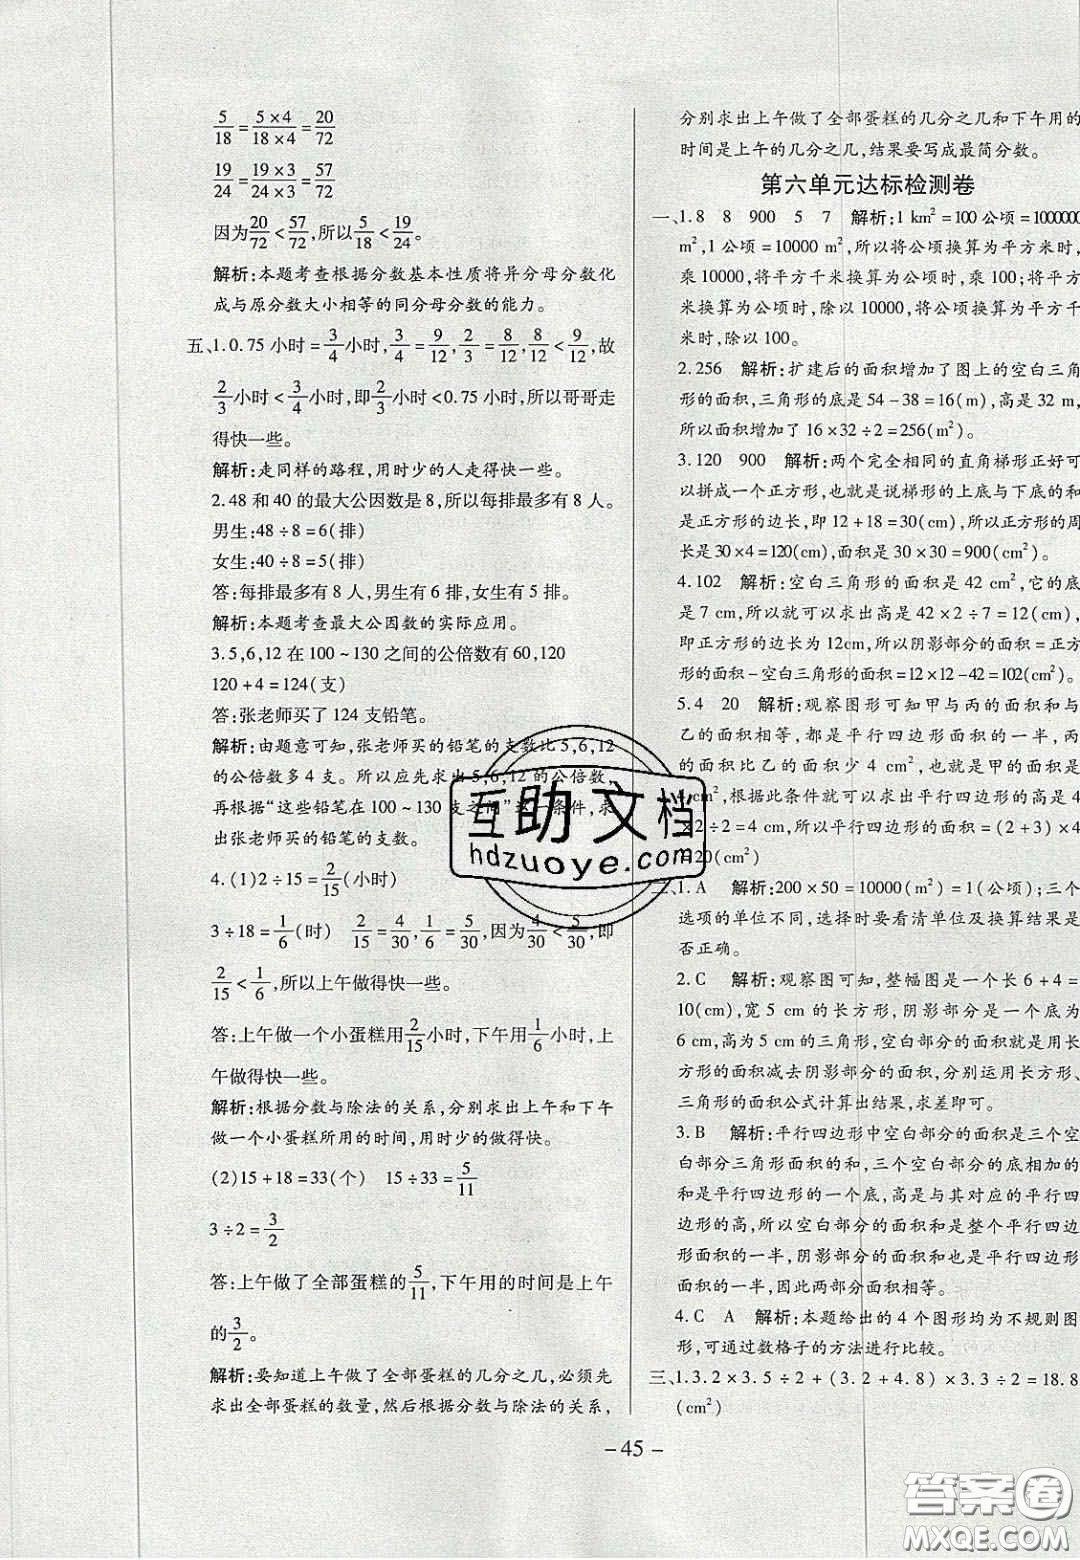 5/18=5×4/18×4=20/72
19/24=19×3/24×3=57/72
因为20/72<57/72,所以5/18<19/24。
解析:本题考查根据分数基本性质将异分母分数化
成与原分数大小相等的同分母分数的能力。
五、1.0.75小时=3/4小时,3/4=9/12,2/3=8/12,8/12<9/12,故
2/3小时<3/4小时,即2/3小时<0.75小时,所以哥哥走
得快一些。
解析:走同样的路程,用时少的人走得快一些。
2.48和40的最大公因数是8,所以每排最多有8人。
男生:48÷8=6(排)
女生:40÷8=5(排)
答:每排最多有8人,男生有6排,女生有5排。
解析:本题考查最大公因数的实际应用。
3.5,6,12在100~130之间的公倍数有60,120
120+4=124(支)
答:张老师买了124支铅笔。
解析:由题意可知,张老师买的铅笔的支数比5,6,12
的公倍数多4支。所以应先求出5,6,12的公倍数,
再根据“这些铅笔在100~130支之间”这一条件,求
出张老师买的铅笔的支数。
4.(1)2÷15=2/15(小时)
3÷18=1/6(时) 2/15=4/30,1/6=5/30,因为4/30<5/30,即
2/15<1/6,所以上午做得快一些。
答:上午做一个小蛋糕用2/15小时,下午用1/6小时,上
午做得快一些。
解析:根据分数与除法的关系,分别求出上午和下午
做一个小蛋糕所用的时间,用时少的做得快。
(2)15+18=33(个) 15÷33=5/11
3÷2=3/2
答:上午做了全部蛋糕的5/11,下午用的时间是上午
的3/2。
解析:要知道上午做了全部蛋糕的几分之几,必须先
求出全部蛋糕的数量,然后根据分数与除法的关系,
分别求出上午做了全部蛋糕的几分之几和下午用的
时间是上午的几分之几,结果要写成最简分数。
第六单元达标检测卷
一、1.8 8 900 5 7 解析:1 km²=100公顷=1000000
m²,1公顷=10000 m²,所以将公顷换算为平方米时,
乘10000,将平方千米换算为公顷时,乘100;将平方
米换算为公顷时,除以10000,将公顷换算为平方千
米时,除以100。
2.256 解析:扩建后的面积增加了图上的空白三角
形的面积,三角形的底是54-38=16(m),高是32 m,
所以面积增加了16×32÷2=256(m²)。
3.120 900 解析:两个完全相同的直角梯形正好可
以拼成一个正方形,也就是说梯形的上底与下底的和
是正方形的边长,即12+18=30(cm),所以正方形的周
长是30×4=120(cm),面积是30×30=900(cm²)。
4.102 解析:空白三角形的面积是42 cm²,它的底
是7 cm,所以就可以求出高是42×2÷7=12(cm),
即正方形的边长为12 cm,所以阴影部分的面积=正方
形的面积-空白三角形的面积=12×12-42=102(cm²)。
5.4 20 解析:观察图形可知甲与丙的面积和与
乙的面积相等,都是平行四边形面积的一半,丙
的面积比乙的面积少4 cm²,也就是甲的面积是
4 cm²,根据此条件就可以求出平行四边形的高是4
×2÷2=4(cm),所以平行四边形的面积=(2+3)×4
=20(cm²)
二、1.A 解析:200×50=10000(m²)=1(公顷);三个
选项的单位不同,选择时要看清单位及换算结果是
否正确。
2.C 解析:观察图可知,整幅图是一个长6+4=
10(cm),宽5 cm的长方形,阴影部分是一个底为
6 cm,高为5 cm的三角形,空白部分的面积是用长方
形的面积减去阴影部分的面积,分别运用长方形、
三角形的面积公式计算出结果,求差即可。
3.B 解析:平行四边形中空白部分的面积是三个空
白部分三角形面积的和,三个空白部分的底相加的
和是平行四边形的一个底,高是与其对应的平行四
边形的高,所以空白部分的面积和是整个平行四边形
的一半,阴影部分的面积也是整个平行四边形
面积的一半,因此两部分面积相等。
4.C A 解析:本题给出的4个图形均为不规则图
形,可通过数格子的方法进行比较。
三、1.3.2×3.5÷2+(3.2+4.8)×3.3÷2=18.8
(cm²)
-45-
互助文档
hdzuoye.com
答案圈
MXQE.COM